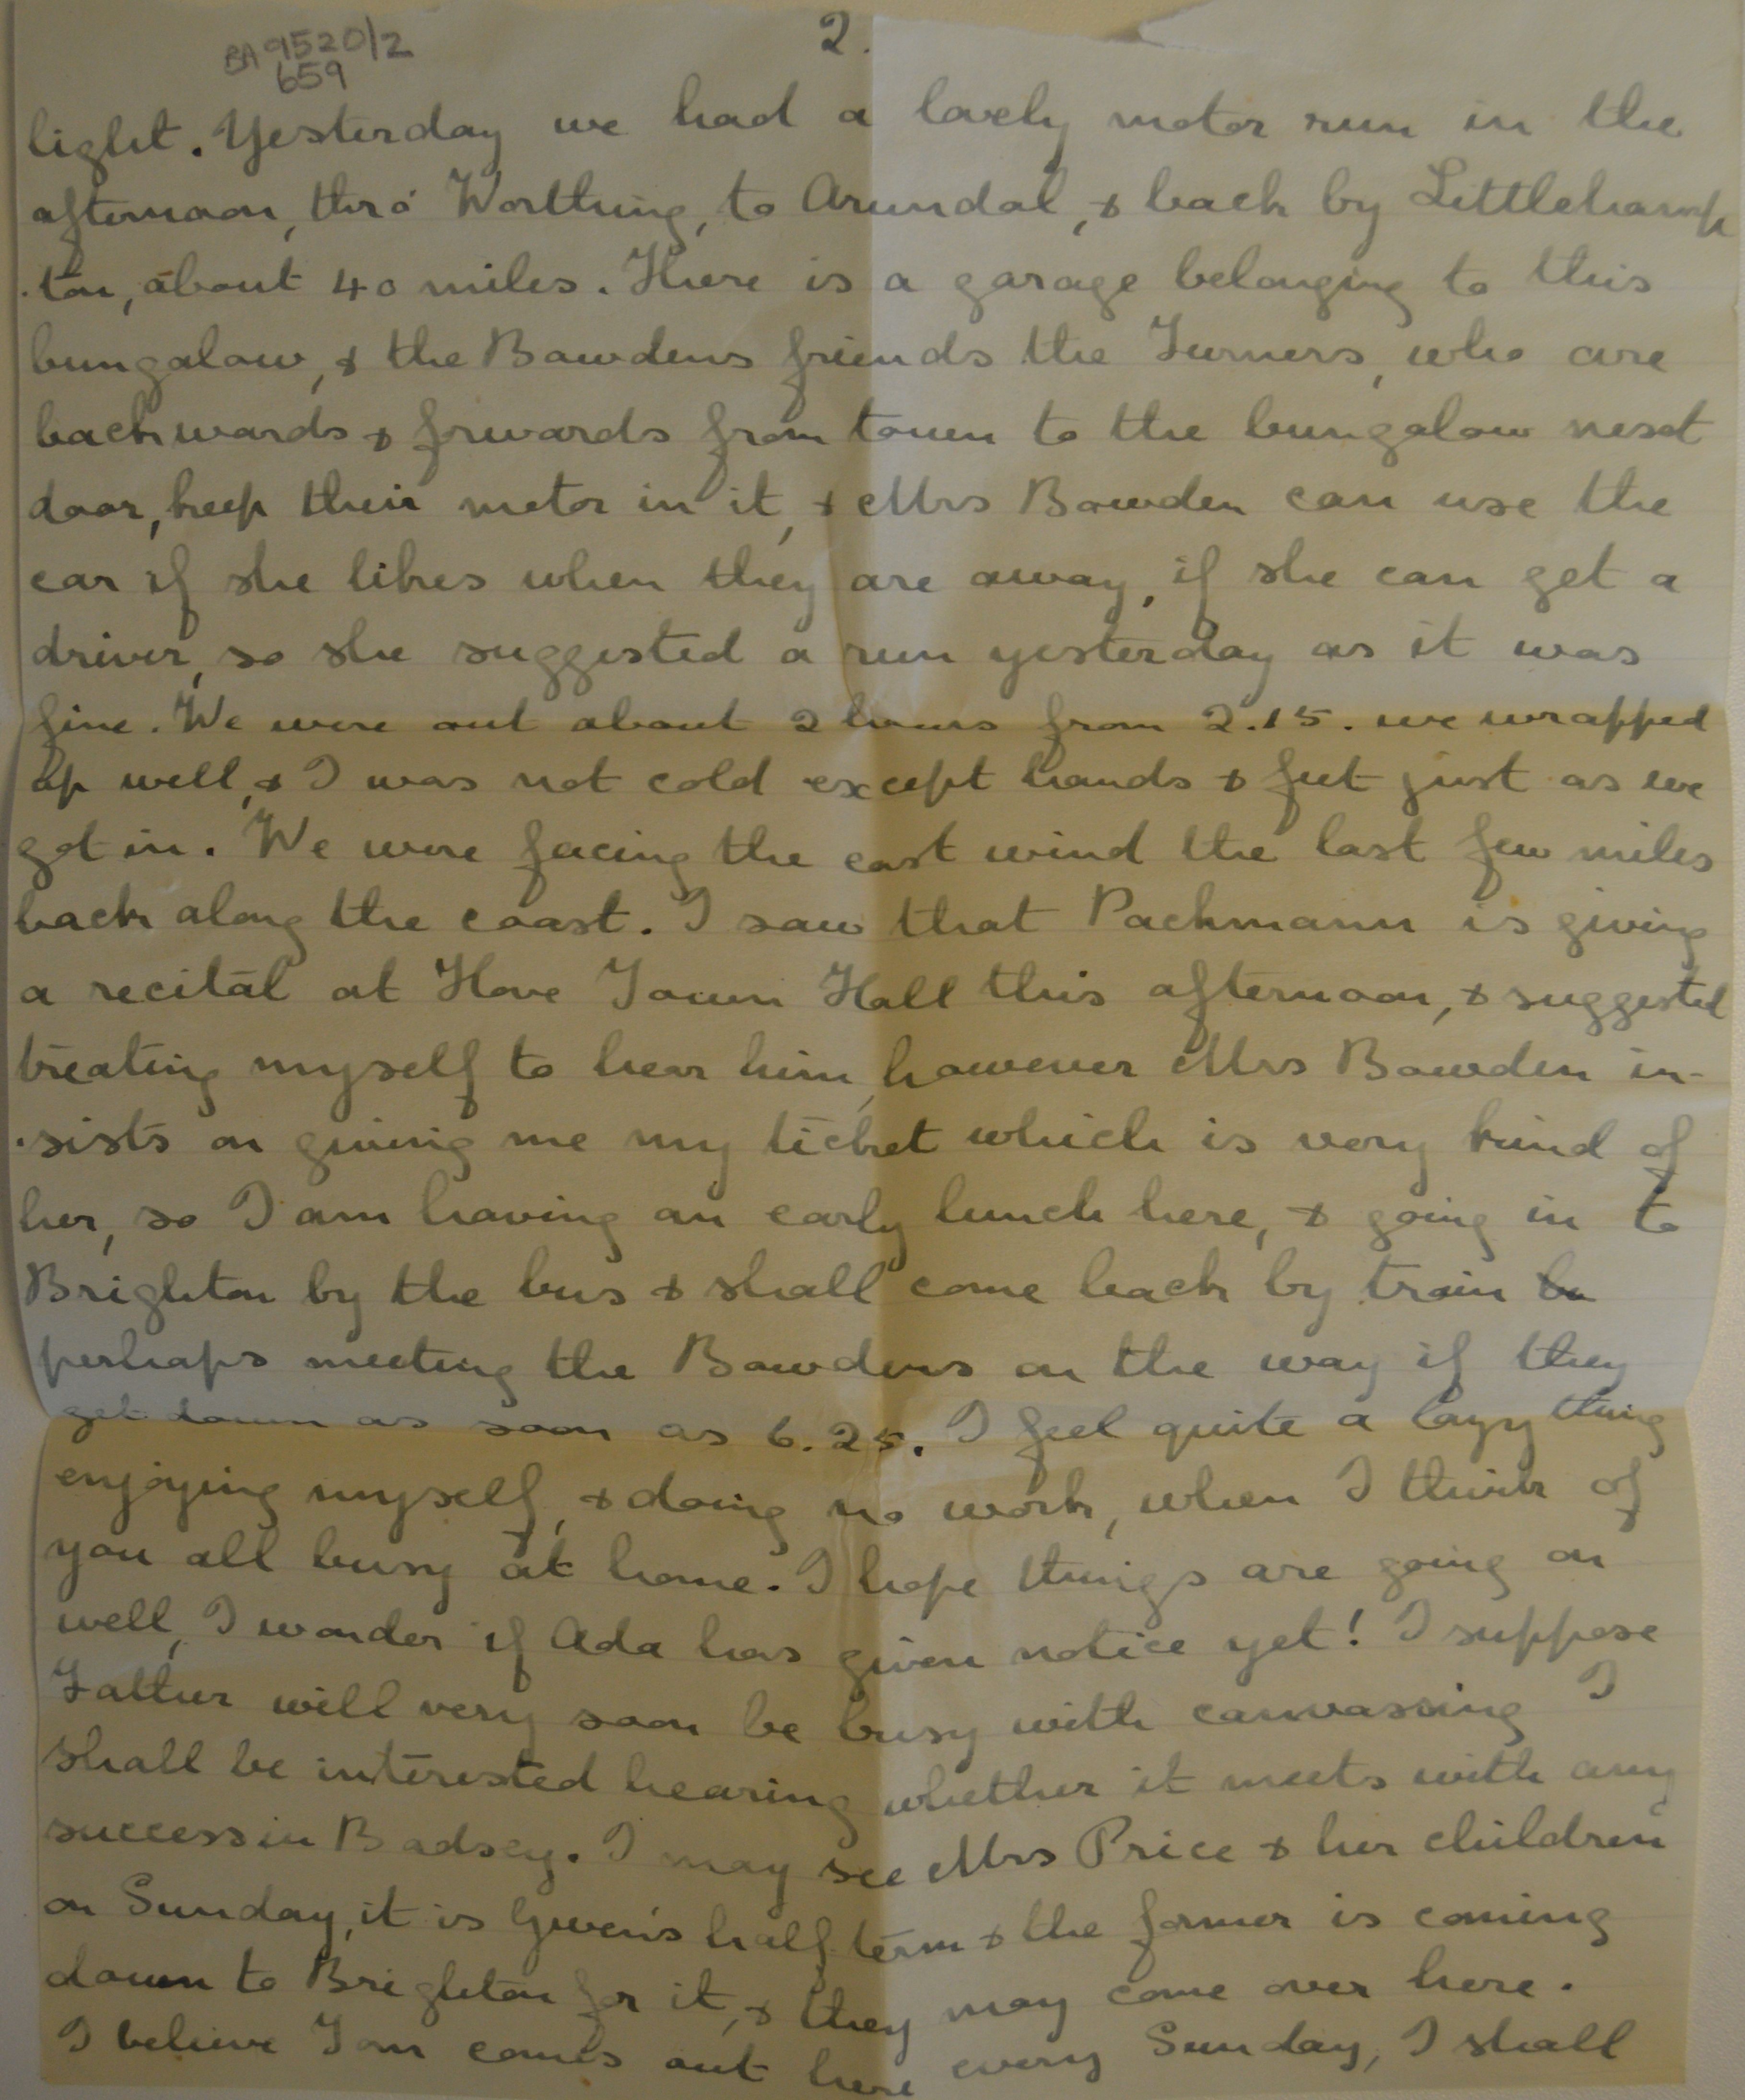 2.
BA 9520/2
659
light. Yesterday we had a lovely motor run in the
afternoon, thro' Worthing, to Arundal, & back by Littlehamp
.ton, about 40 miles. There is a garage belonging to this
bungalow, & the Bawdens friends the Turners, who are
backwards & forwards from town to the bungalow next
door, keep their motor in it, & Mrs Bowden can use the
car if she likes when they are away, if she can get a
driver, so she suggested a run yesterday as it was
fine. We were out about 2 hours from 2.15. we wrapped
up well, & I was not cold except hands & feet just as we
got in. We were facing the east wind the last few miles
back along the coast. I saw that Pachmann is giving
a recital at Hove Town Hall this afternoon, & suggested
treating myself to hear him, however Mrs Bowden in-
.sists on giving me my ticket which is very kind of
her, so I am having an early lunch here, & going in to
Brighton by the bus & shall come back by train
perhaps meeting the Bawdens on the way if they
get down as soon as 6.25. I feel quite a lazy thing
enjoying myself, & doing no work, when I think of
you all busy at home. I hope things are going on
well, I wonder if Ada has given notice yet! I suppose
Father will very soon be busy with canvassing I
shall be interested hearing whether it meets with any
success in Badsey. I may see Mrs Price & her children
on Sunday, it is Gwen's half term & the former is coming
down to Brighton for it, & they may come over here.
I believe Tom comes out here every Sunday, I shall